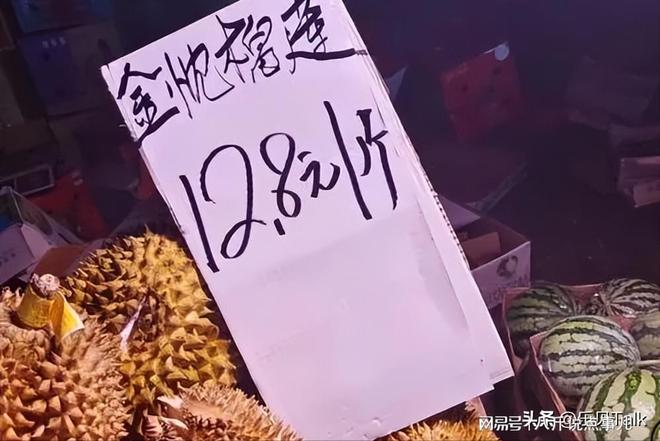 金枕榴莲
12.8元/斤
头条
网易号